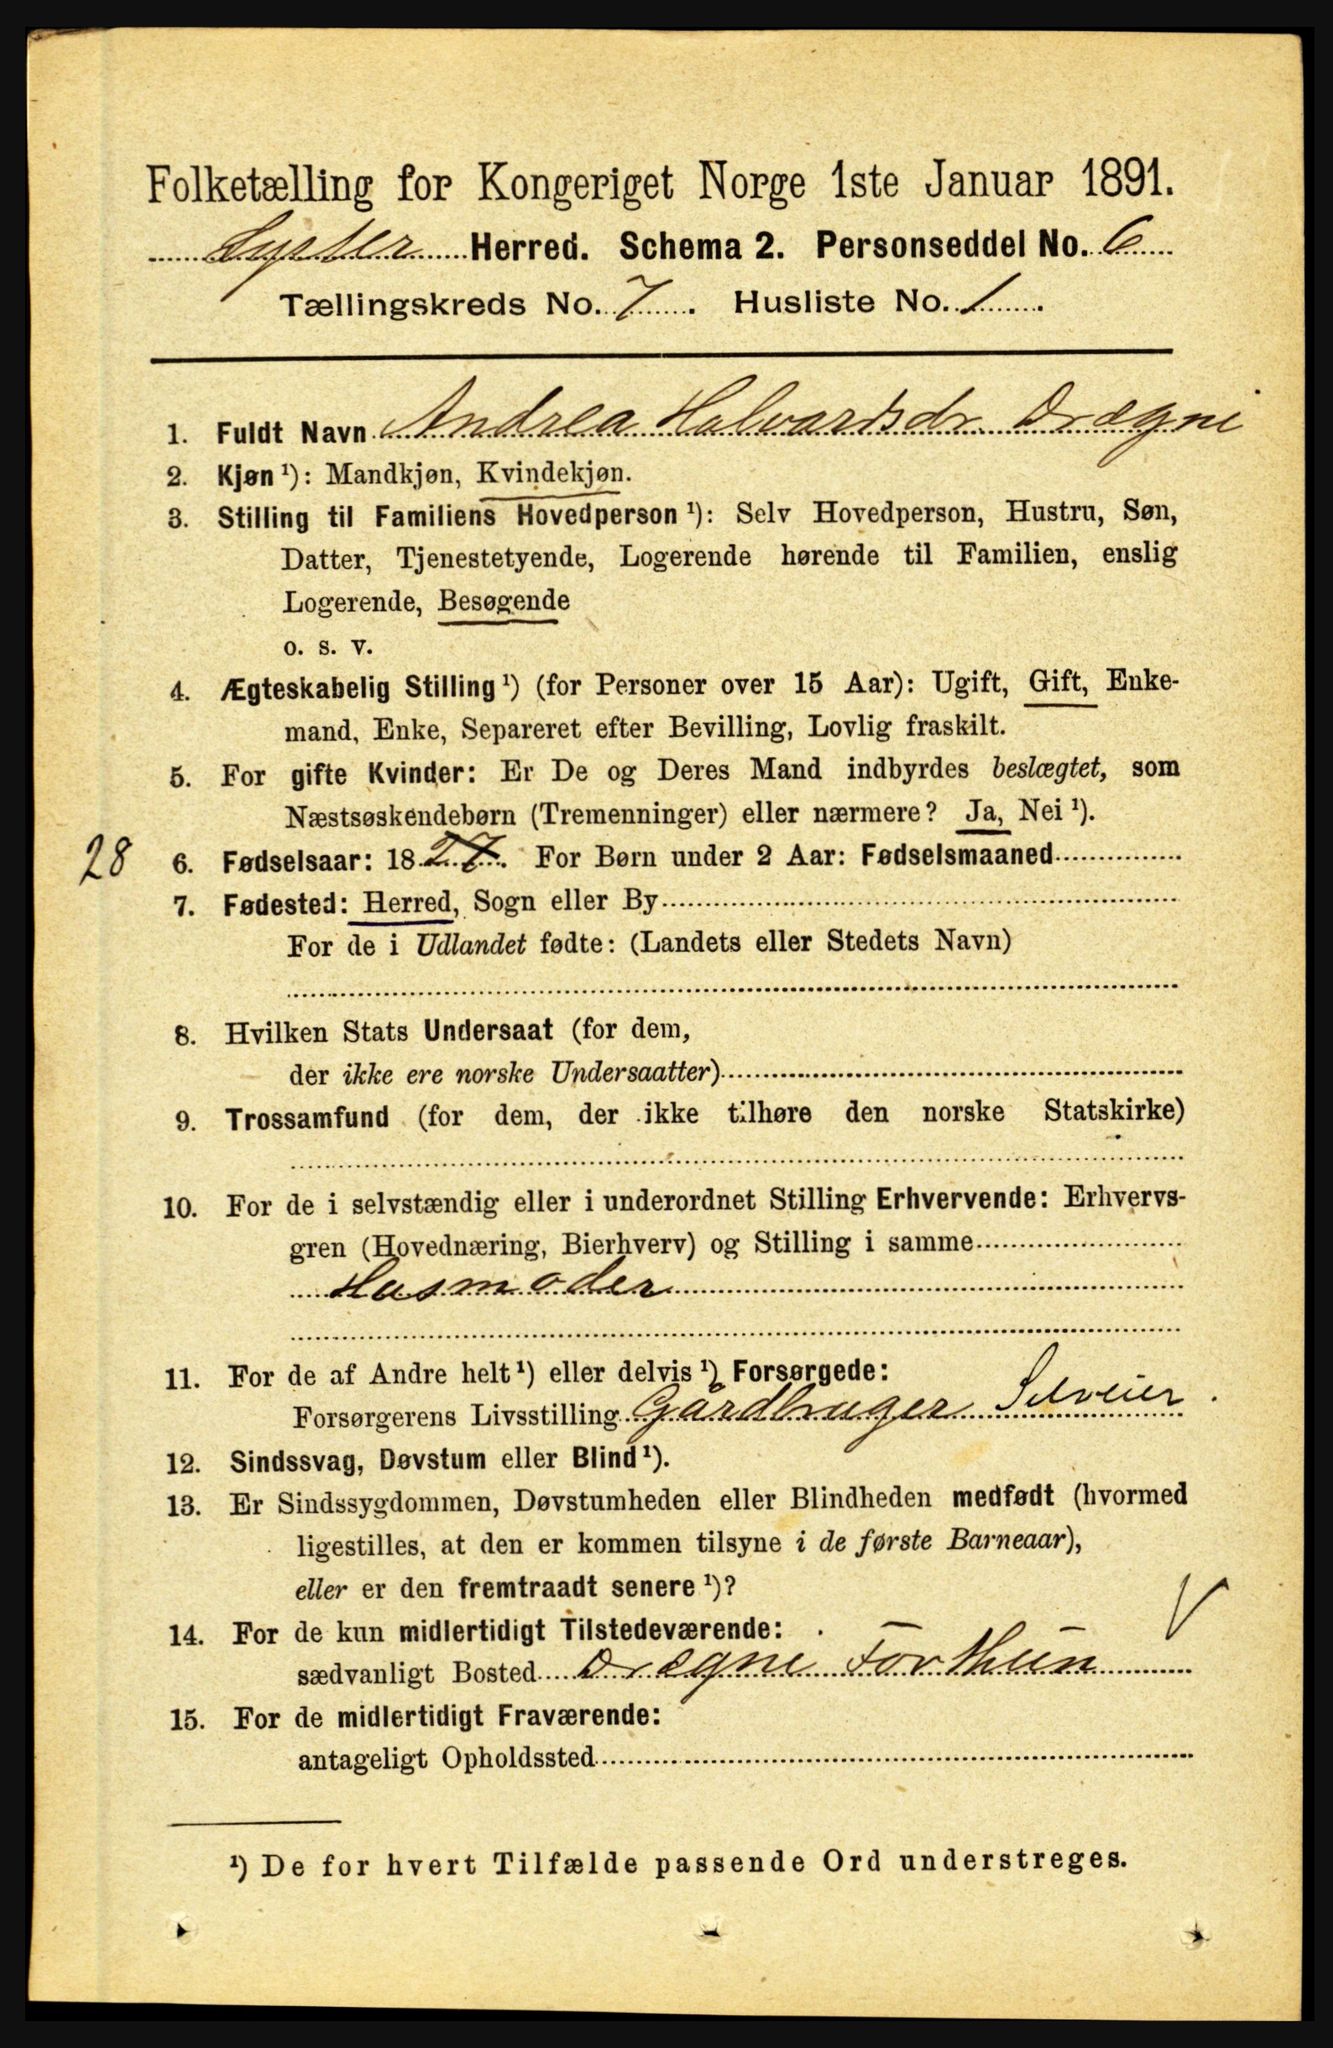 Folketælling for Kongeriget Norge 1ste Januar 1891.
Lyster Herred. Schema 2. Personseddel No. 6
Tællingskreds No. 7. Husliste No. 1.
1. Fuldt Navn Andrea Halvardsdr. Drægni
2. Kjøn ¹): Mandkjøn, Kvindekjøn.
3. Stilling til Familiens Hovedperson ¹): Selv Hovedperson, Hustru, Søn,
Datter, Tjenestetyende, Logerende hørende til Familien, enslig
Logerende, Besøgende
o. s. v.
4. Ægteskabelig Stilling ¹) (for Personer over 15 Aar): Ugift, Gift, Enke-
mand, Enke, Separeret efter Bevilling, Lovlig fraskilt.
5. For gifte Kvinder: Er De og Deres Mand indbyrdes beslægtet, som
Næstsøskendebørn (Tremenninger) eller nærmere? Ja, Nei ¹).
28 6. Fødselsaar: 1827. For Børn under 2 Aar: Fødselsmaaned
7. Fødested: Herred, Sogn eller By
For de i Udlandet fødte: (Landets eller Stedets Navn)
8. Hvilken Stats Undersaat (for dem,
der ikke ere norske Undersaatter)
9. Trossamfund (for dem, der ikke tilhøre den norske Statskirke)
10. For de i selvstændig eller i underordnet Stilling Erhvervende: Erhvervs-
gren (Hovednæring, Bierhverv) og Stilling i samme
Husmoder
11. For de af Andre helt ¹) eller delvis ¹) Forsørgede:
Forsørgerens Livsstilling Gårdbruger Selveier.
12. Sindssvag, Døvstum eller Blind ¹).
13. Er Sindssygdommen, Døvstumheden eller Blindheden medfødt (hvormed
ligestilles, at den er kommen tilsyne i de første Barneaar),
eller er den fremtraadt senere ¹)?
14. For de kun midlertidigt Tilstedeværende:
sædvanligt Bosted Drægni Forthun
15. For de midlertidigt Fraværende:
antageligt Opholdssted
¹) De for hvert Tilfælde passende Ord understreges.